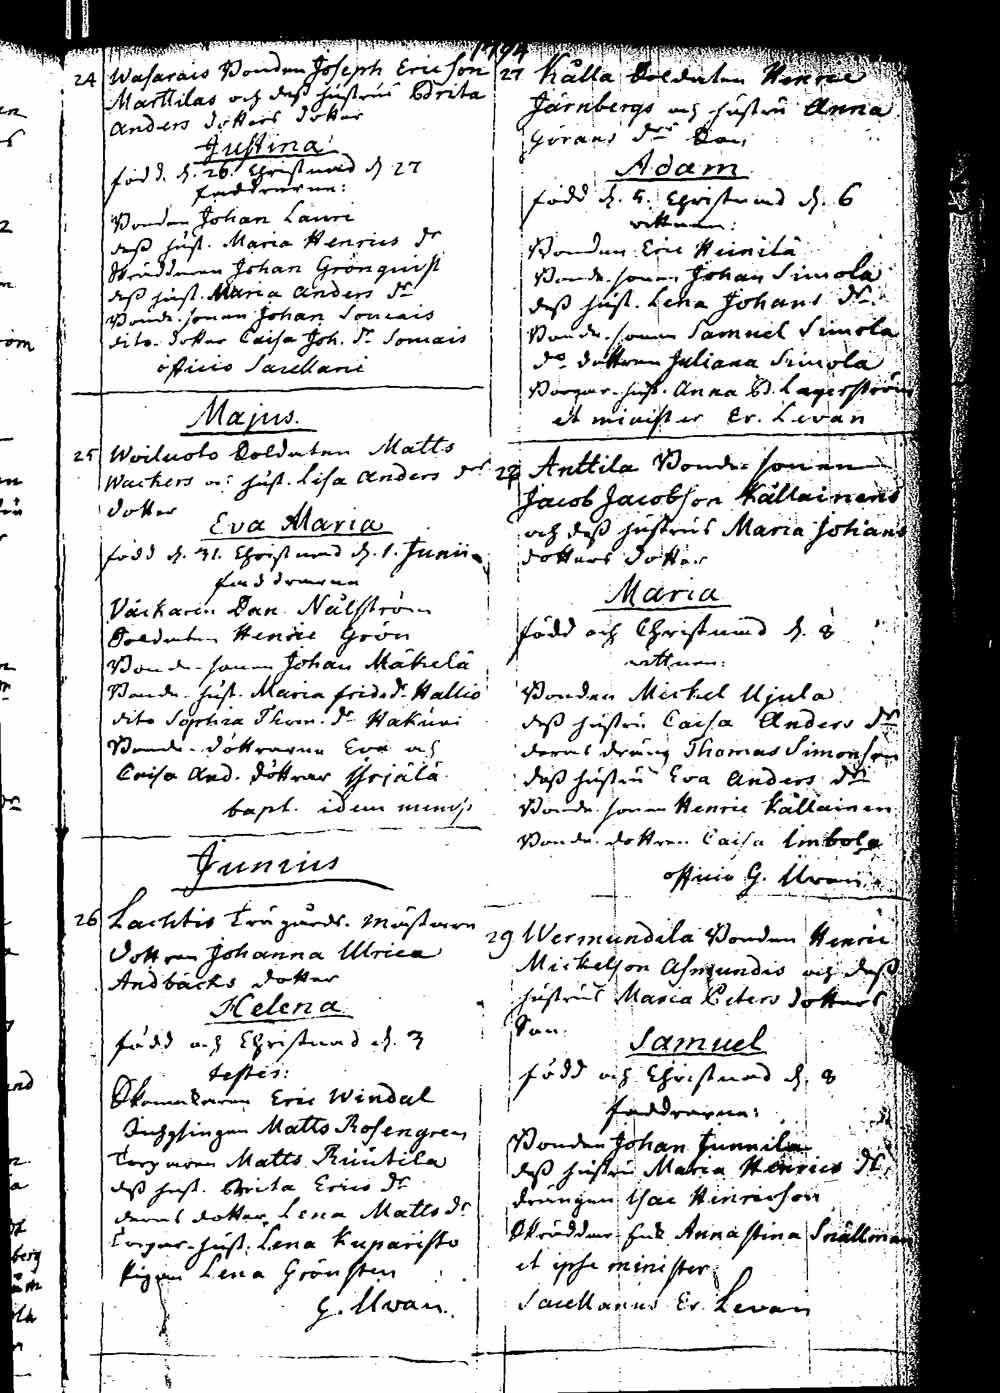 1794
24 Wasarais Bonden Joseph Ericson
Marttilas och dess hustrus Brita
Anders dotters dotter
Justina
född d. 26. Christnad d 27
faddrarna:
Bonden Johan Lauri
dess hust. Maria Henrics dr
Skräddaren Johan Grönquist
dess hust. Maria Anders dr
Bonde-sonen Johan Sonnais
dito dotter Caisa Joh. dr Sonnais
officio Sacellani
Majus.
25 Woiluoto Soldaten Matts
Wackers och hust. Lisa Anders drs
dotter
Eva Maria
född d. 31. Christnad d. 1. Junii
faddrarna
Väckaren Dan. Nälström
Soldaten Henric Grön
Bonde-sonen Johan Mäkelä
Bonde-hust. Maria Frids dr Hallio
dito Sophia Thom. dr Hakuni
Bonde-döttrarna Eva och
Caisa And. döttrar
bapt. idem minist
Junius
26 Lachtis Trägårds-mästaren
dottren Johanna Ulrica
Andbäcks dotter
Helena
född och Christnad d. 3
testes:
Skomakaren Eric Windal
Matts Rosengren
Torparen Matts Rüütila
dess hust. Brita Erics dr
deras dotter Lena Matts dr
Torpar-hust. Lena Kuparisto
Pigan Lena Grönsten
G. Uvan.
27 Källa Soldaten Henric
Järnbergs och hustru Anna
Görans drs Son
Adam
född d. 5. Christnad d. 6
vittnen:
Bonden Eric Heinilä
Bonde-sonen Johan Simola
dess hust. Lena Johans dr
Bonde-sonen Samuel Simola
do dottren Juliana Simola
Borgar-hust. Anna B. Lagerström
et minister Er. Levan
28 Anttila Bonde-sonen
Jacob Jacobson Källainens
och dess hustrus Maria Johans
dotters dotter
Maria
född och Christnad d. 8
vittnen:
Bonden Mickel Ujula
dess hustru Caisa Anders dr
deras dräng Thomas Simonson
dess hustru Eva Anders dr
Bonde-sonen Henric Källainen
Bonde-dottren Caisa Imbola
officio G. Uvan.
29 Wermundila Bonden Henric
Mickelson Asmundis och dess
hustrus Maria Peters dotters
Son
Samuel
född och Christnad d. 8
faddrarna:
Bonden Johan Junnila
dess hustru Maria Henrics dr
drängen Isac Henricson
Skräddar Enk. Anna Stina Snällman
et ipse minister
Sacellanus Er. Levan